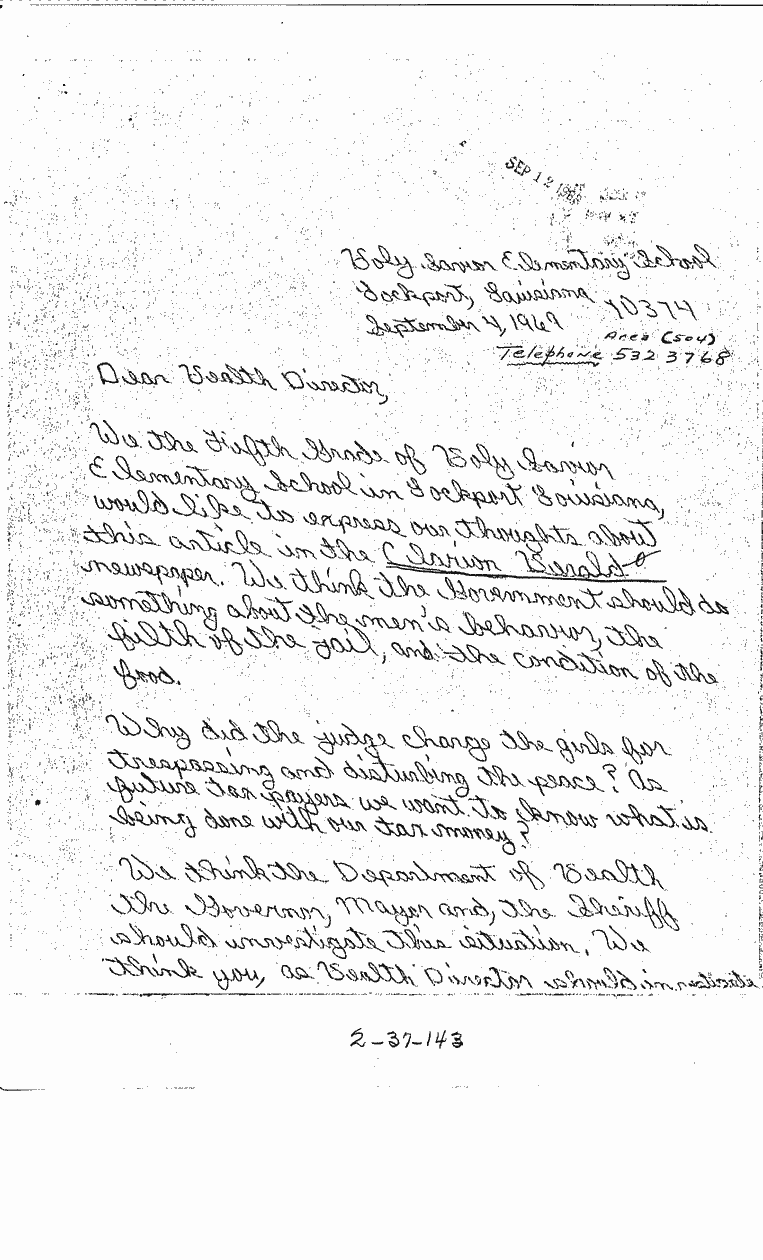 SEP 12 196
Holy Savior Elementary School
Lockport, Louisiana 70374
September 4, 1969
Area (504)
Telephone 532 3768
Dear Health Director,
We the Fifth Grade of Holy Savior
Elementary School in Lockport Louisiana,
would like to express our thoughts about
this article in the Clarion Herald
newspaper. We think the Government should do
something about the men's behavior, the
filth of the jail, and the condition of the
food.
Why did the judge charge the girls for
trespassing and disturbing the peace? As
future tax payers we want to know what is
being done with our tax money?
We think the Department of Health
the Governor, Mayor and, the Sheriff
should investigate this situation. We
think you, as Health Director should
2-37-143